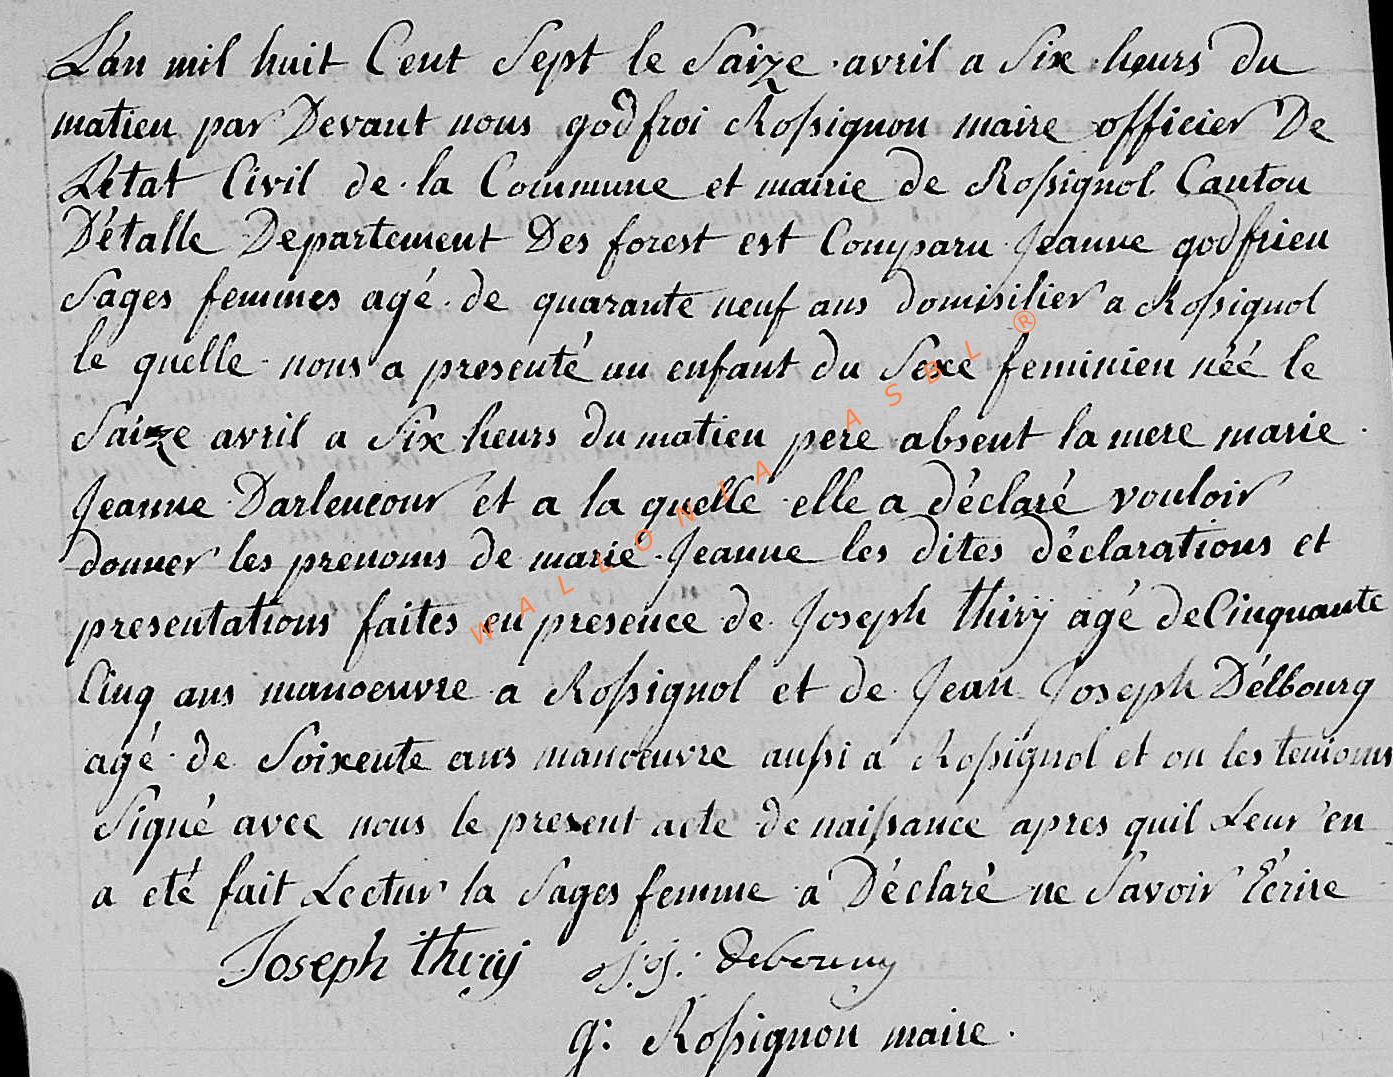 L'an mil huit Cent Sept le Saize avril a Six heurs du
matien par Devant nous godfroi Rossignon maire officier De
L'etat Civil de la Commune et mairie de Rossignol Canton
D'étalle Departement Des forest est Comparu Jeanne godfrien
Sages femmes agé de quarante neuf ans domisilier a Rossignol
le quelle nous a presenté un enfant du Sexe feminien néé le
Saize avril a Six heurs du matien pere absent la mere marie
Jeanne Darlencour et a la quelle elle a déclaré vouloir
donner les prenoms de marie Jeanne les dites déclarations et
presentations faites en presence de Joseph thirÿ agé de Cinquante
Cinq ans manoeuvre a Rossignol et de Jean Joseph Délbourg
agé de Soixente ans manoeuvre aussi a Rossignol et on les temoins
Signé avec nous le present acte de naissance apres quil Leur en
a eté fait Lectur la Sages femme a Déclaré ne Savoir Écrire
Joseph thirÿ J: J:
g: Rossignon maire.
WALLONIA ASBL ®